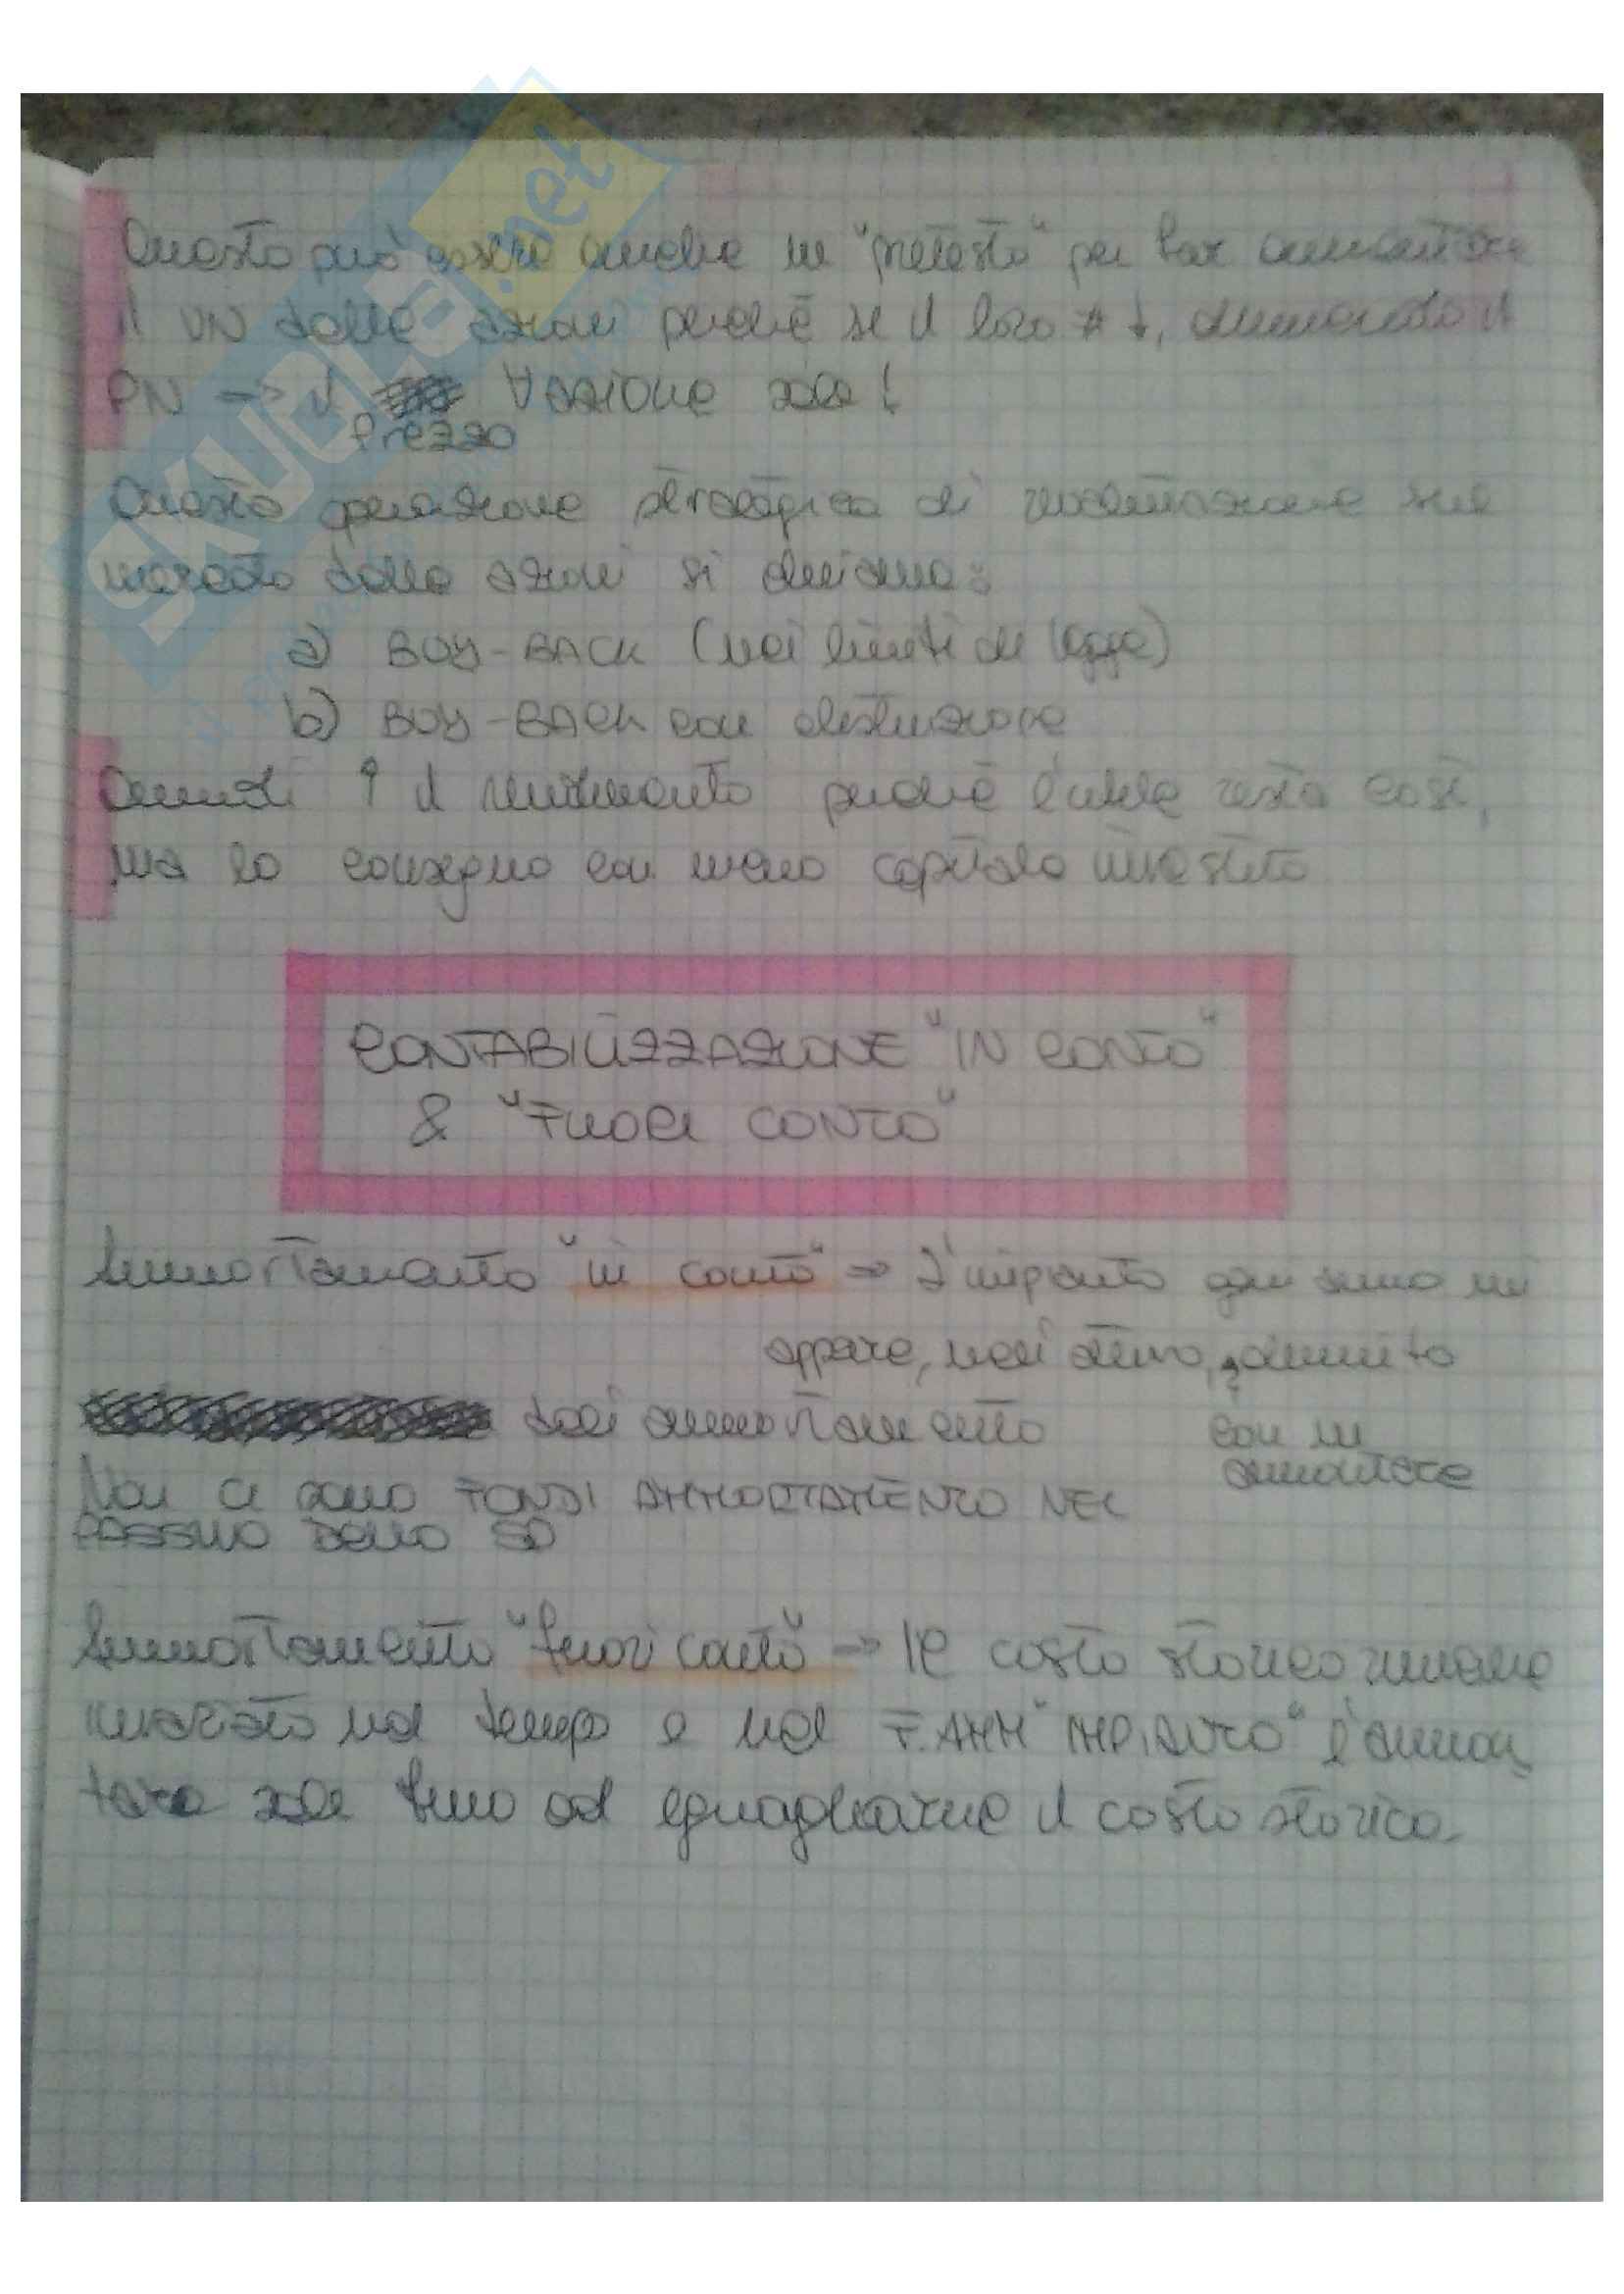 Questo può essere anche un "pretesto" per far aumentare
il VN delle azioni perché se il loro # ↓, aumentando il
PN → il prezzo ∀ azione sale!
Questa operazione strategica di
mercato delle azioni si chiama:
a) BUY-BACK (nei limiti di legge)
b) BUY-BACK con distruzione
Quindi ↑ il rendimento perché l'utile resta così,
ma lo conseguo con meno capitale investito
CONTABILIZZAZIONE "IN CONTO"
& "FUORI CONTO"
Ammortamento "in conto" ⇒ L'impianto ogni anno mi
appare, nell'attivo,
dell'ammortamento
con un
Non ci sono FONDI AMMORTAMENTO NEL
PASSIVO DELLO SP
Ammortamento "fuori conto" → Il costo storico rimane
invariato nel tempo e nel F.AMM "IMPIANTO" l'ammon
tare sale fino ad eguagliarne il costo storico.
SKUOLA.net